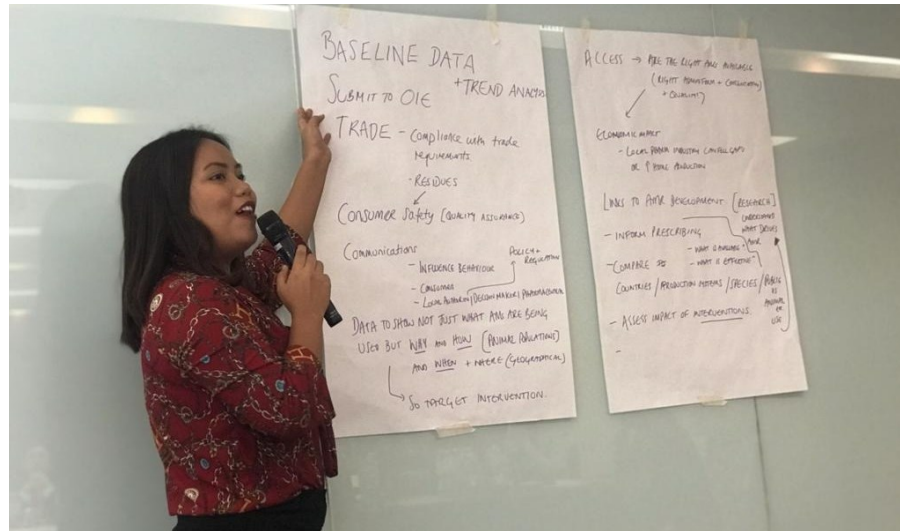 BASELINE DATA
+ TREND ANALYSIS
SUBMIT TO OIE
TRADE - Compliance with trade
requirements
- RESIDUES
Consumer Safety [QUALITY ASSURANCE]
Communications
POLICY +
REGULATION
- INFLUENCE BEHAVIOUR
- CONSUMER
- LOCAL AUTHORITY/DECISION MAKER/PHARMACEUTICAL
DATA TO SHOW NOT JUST WHAT AMS ARE BEING
USED BUT WHY AND HOW [ANIMAL POPULATIONS]
AND WHEN + WHERE (GEOGRAPHICAL)
SO TARGET INTERVENTION.
ACCESS → ARE THE RIGHT AMS AVAILABLE
(RIGHT + +
+ QUALITY)
ECONOMIC
- LOCAL PHARMA INDUSTRY GAPS
OR ↑
LINKS TO AMR DEVELOPMENT [RESEARCH]
UNDERSTAND
WHAT DRIVES
AMR
- INFORM PRESCRIBING
- WHAT IS AVAILABLE
- WHAT IS EFFECTIVE
- COMPARE
COUNTRIES / PRODUCTION SYSTEMS / SPECIES /
VS
ANIMAL
USE
- ASSESS IMPACT OF INTERVENTIONS.
-